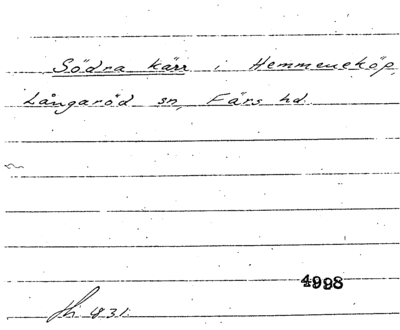 Södra kärr i Hemmeneköp,
Långaröd sn, Färs hd.
4998
831.